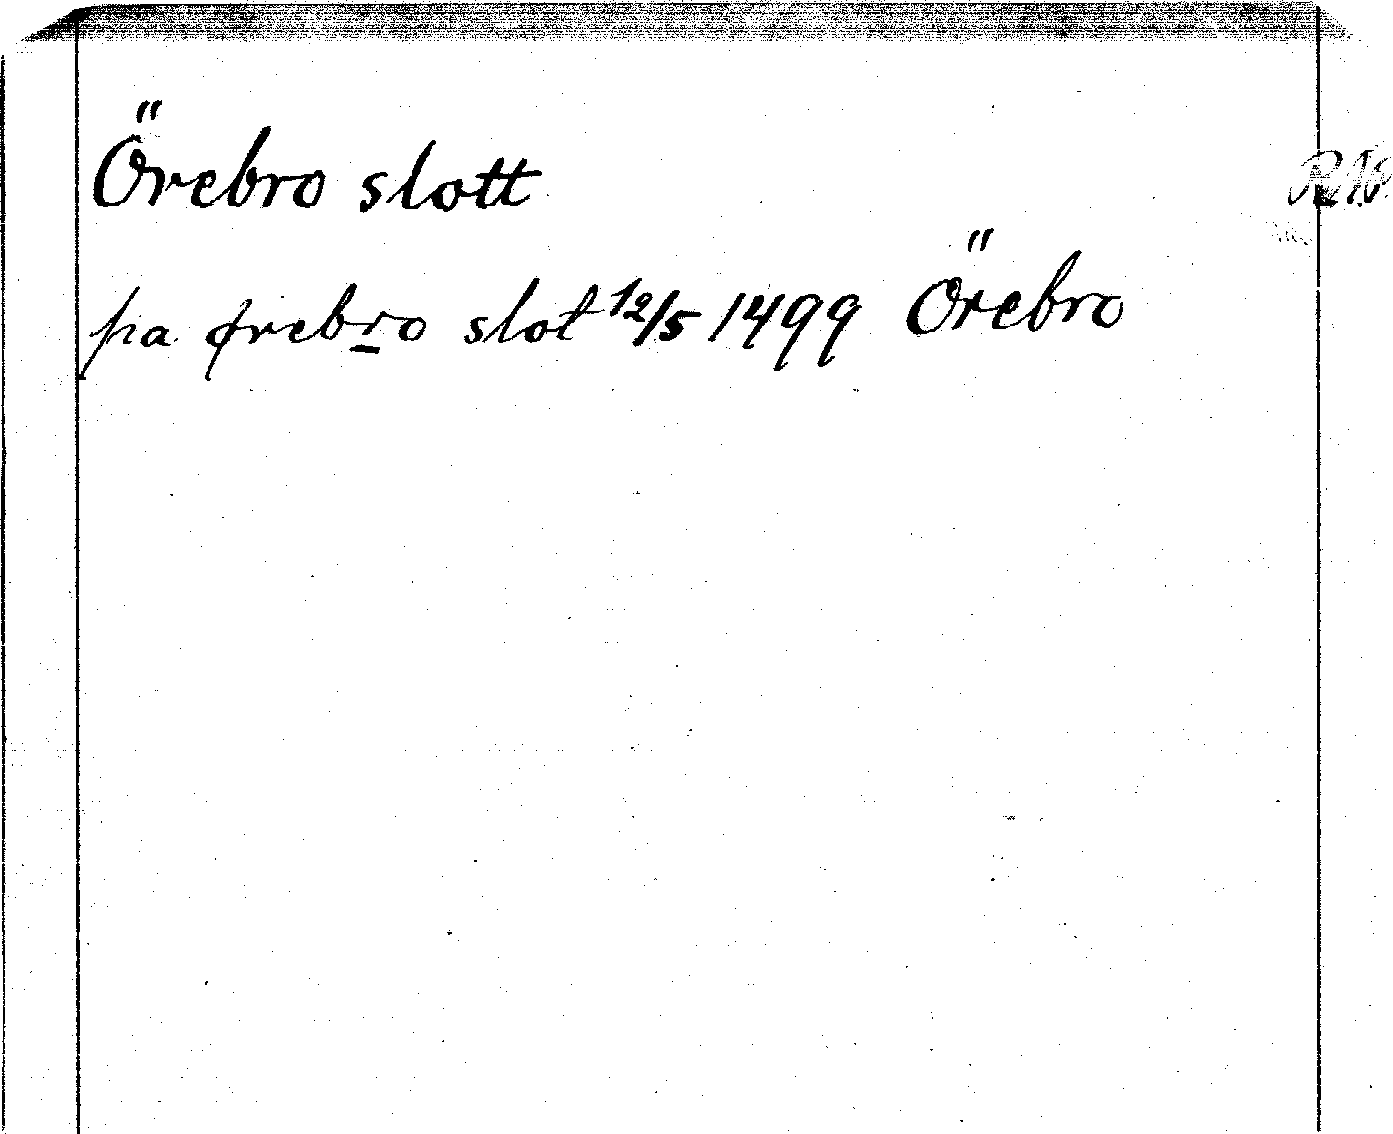 Örebro slott
pa ørebro slot 12/5 1499 Örebro